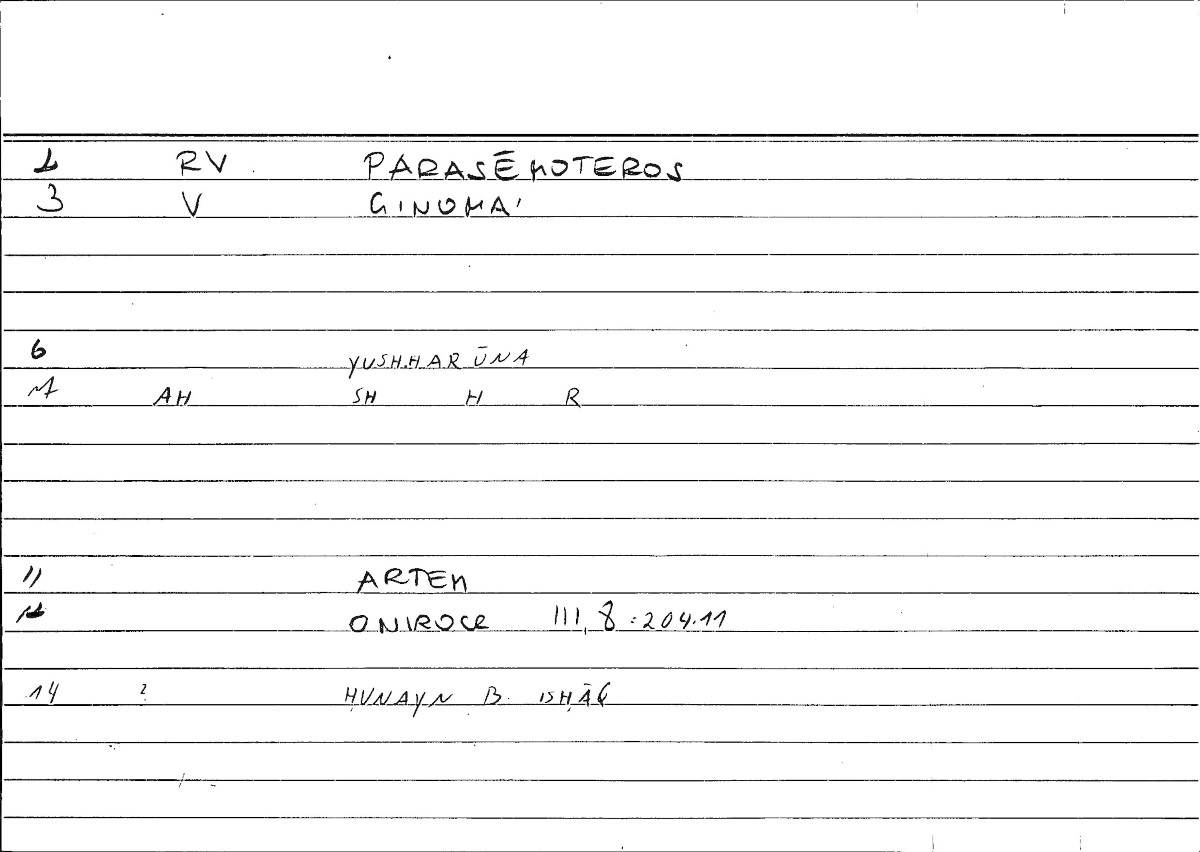 1 RV PARASĒMOTEROS
3 V GINOMAI
6 YUSH.HARŪNA
AH SH H R
11 ARTEM
ONIROCR III, 8 : 204.11
14 ? ḤUNAYN B. ISḤĀQ